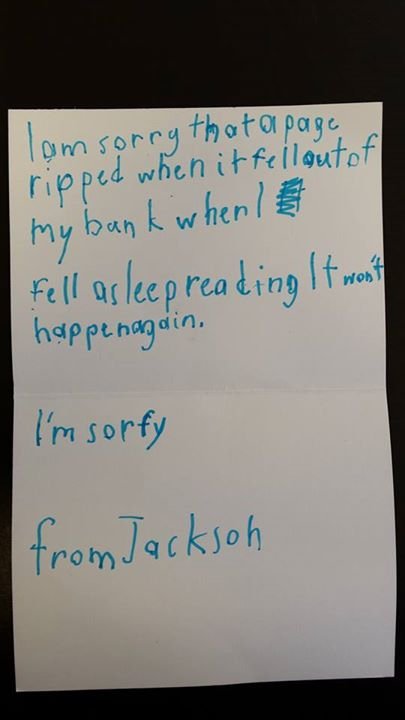 I am sorry that a page
ripped when it fell out of
my bank when I
fell asleep reading It won't
happen again.
I'm sorry
from Jackson